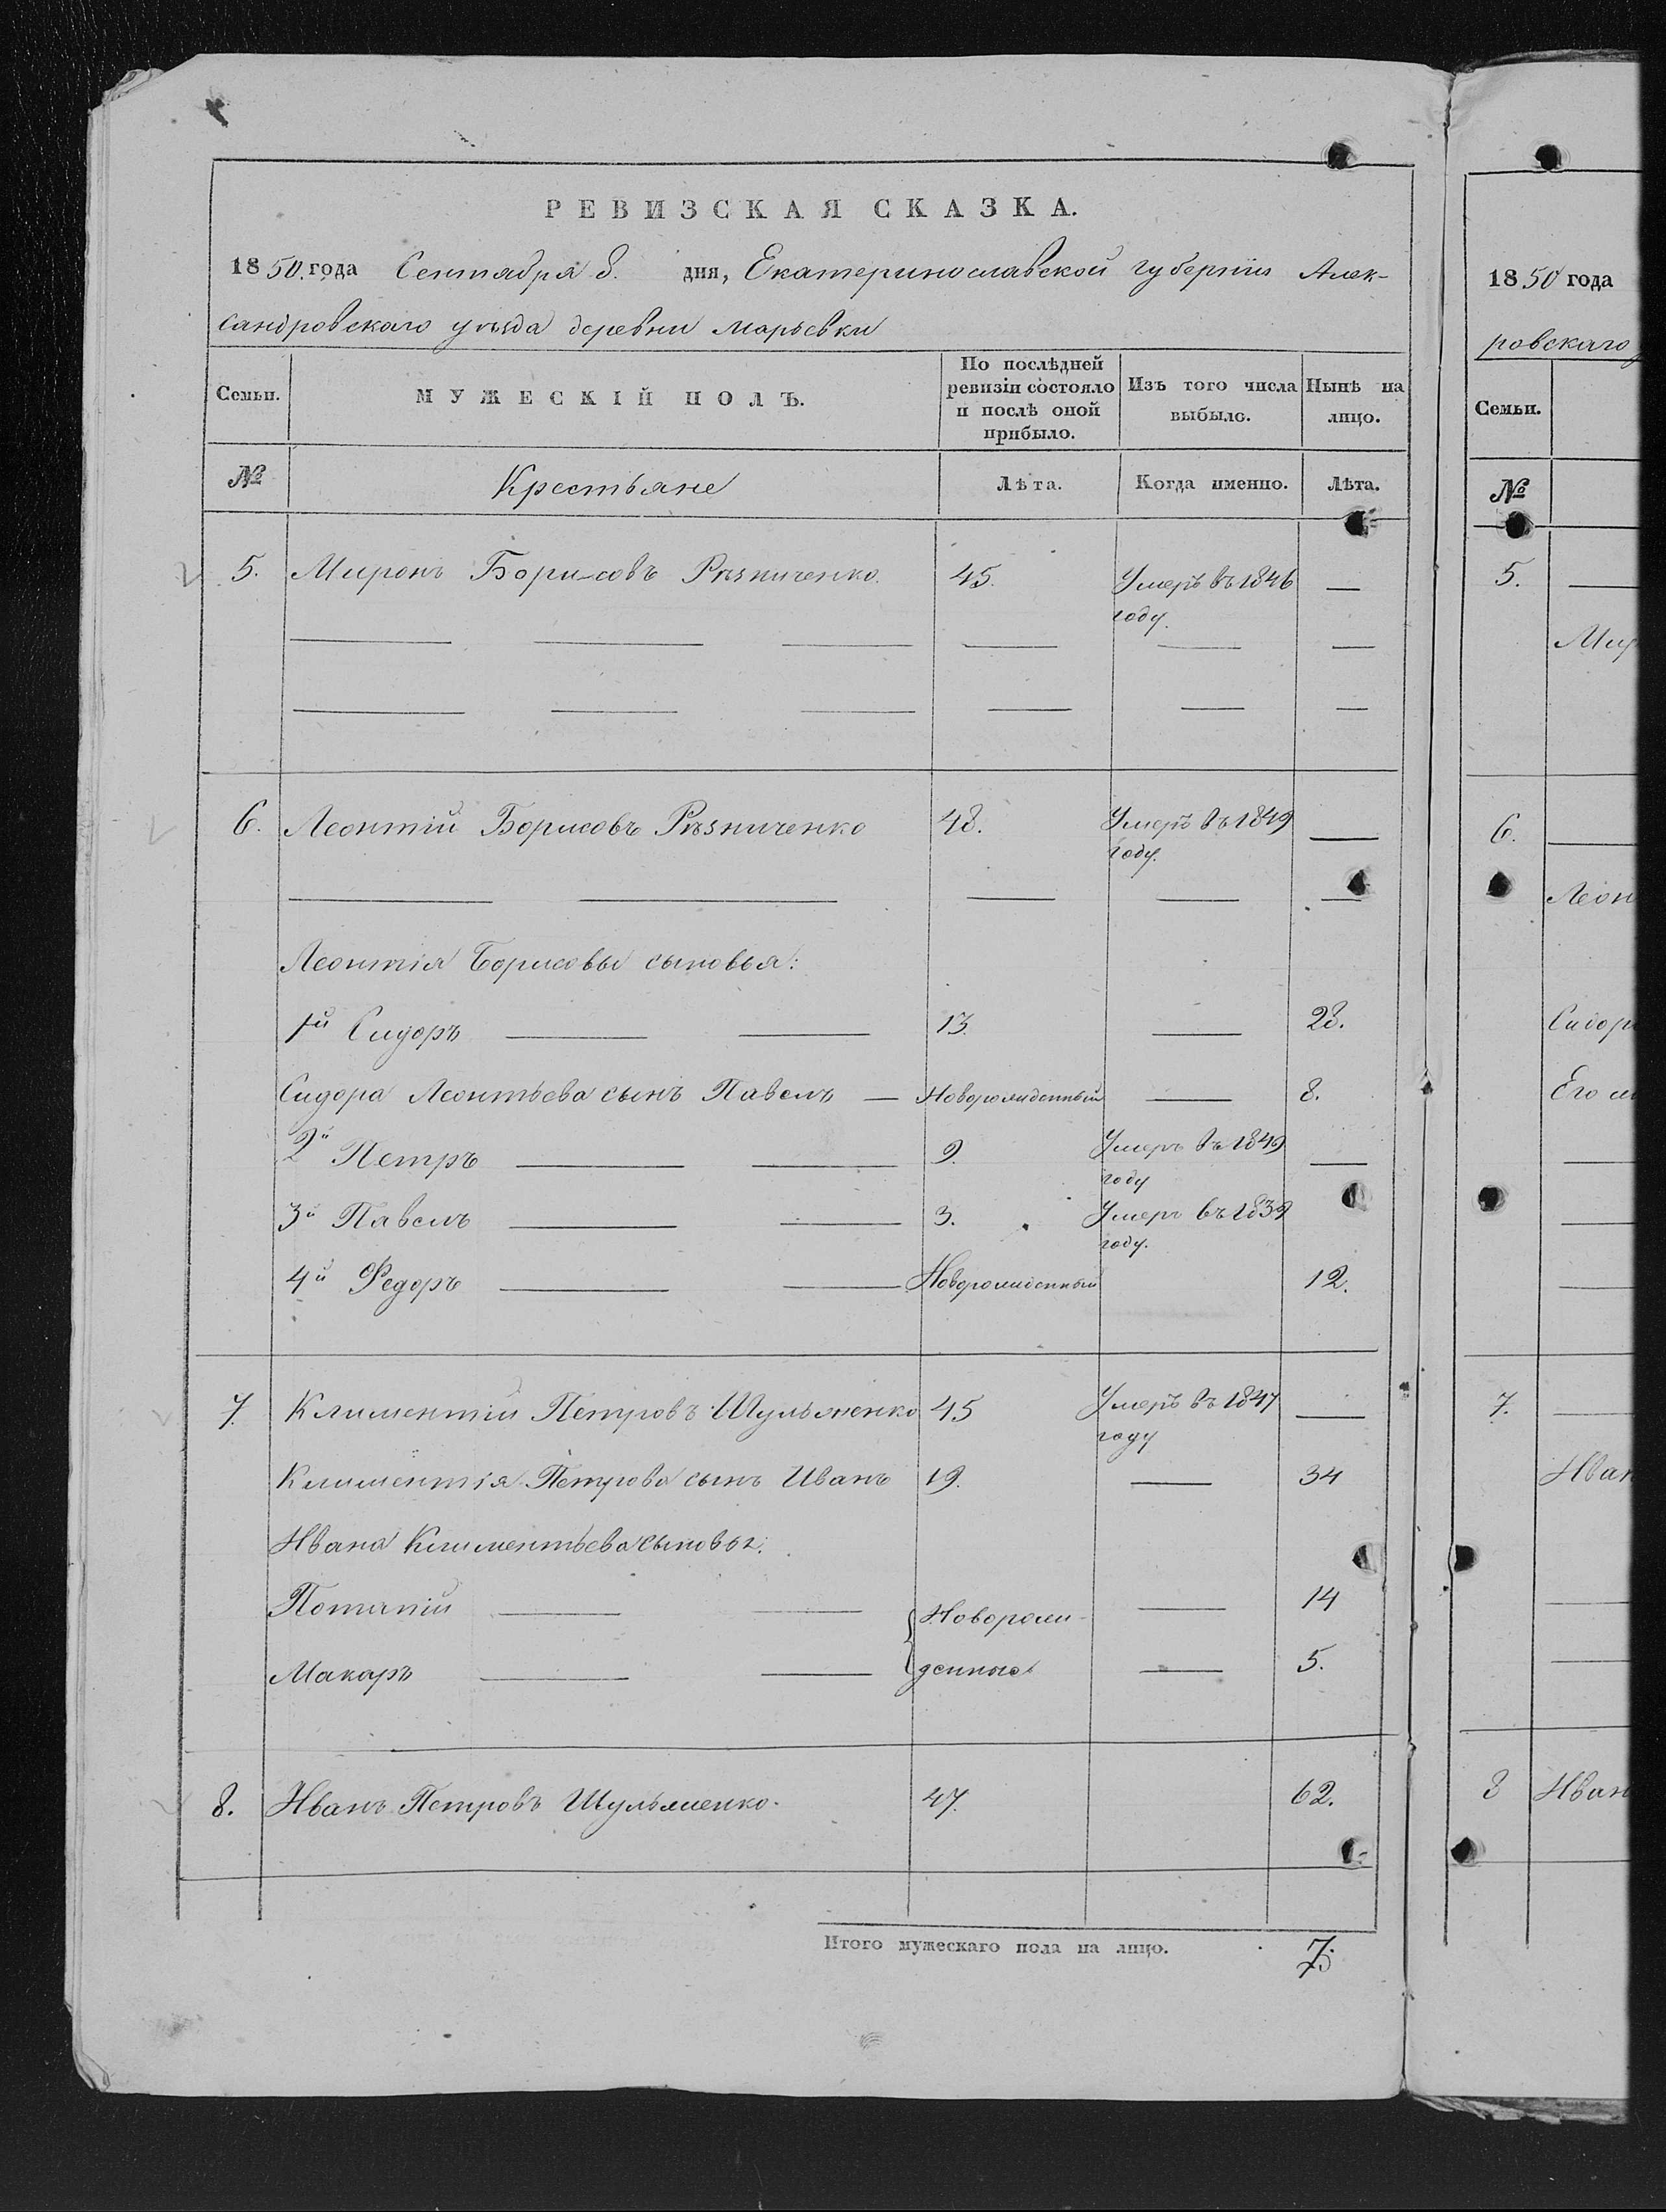 РЕВИЗСКАЯ СКАЗКА.
1850. года Сентября 8. дня, Екатеринославской губерніи Алек-
сандровскаго уѣзда деревни Марьевки
Семьи. МУЖЕСКІЙ ПОЛЪ. По послѣдней ревизіи состояло и послѣ оной прибыло. Изъ того числа выбыло. Нынѣ на лицо.
№ Крестьяне Лѣта. Когда именно. Лѣта.
5. Миронъ Борисовъ Рѣзниченко. 45. Умеръ въ 1846 —
году.
6. Леонтій Борисовъ Рѣзниченко 48. Умеръ въ 1849 —
году.
Леонтія Борисовы сыновья:
1й Сидоръ 13. — 28.
Сидора Леонтьева сынъ Павелъ — Новорожденный — 8.
2й Петръ 9. Умеръ въ 1849 —
году
3й Павелъ 3. Умеръ въ 1839
году.
4й Федоръ Новорожденный 12.
7. Климентій Петровъ Шульженко 45 Умеръ въ 1847 —
году
Климентія Петрова сынъ Иванъ 19. — 34
Ивана Климентьева сыновья:
Потапій Новорож- — 14
Макаръ денные — 5.
8. Иванъ Петровъ Шульженко. 47. 62.
Итого мужескаго пола на лицо. 7.
1850 года
ровскаго
Семьи.
№
5.
6.
Его
7.
Иван
8 Иван